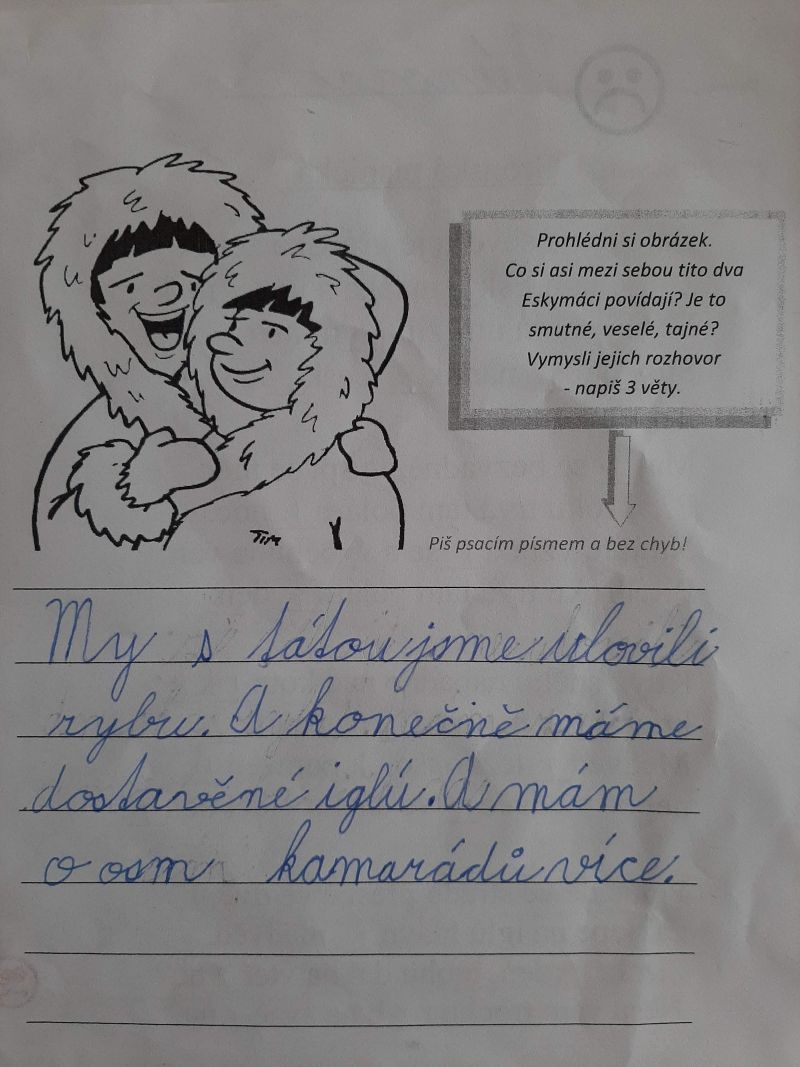 Prohlédni si obrázek.
Co si asi mezi sebou tito dva
Eskymáci povídají? Je to
smutné, veselé, tajné?
Vymysli jejich rozhovor
- napiš 3 věty.
TIM
Piš psacím písmem a bez chyb!
My s tátou jsme ulovili
rybu. A konečně máme
dostavěné iglú. A mám
o osm kamarádů více.